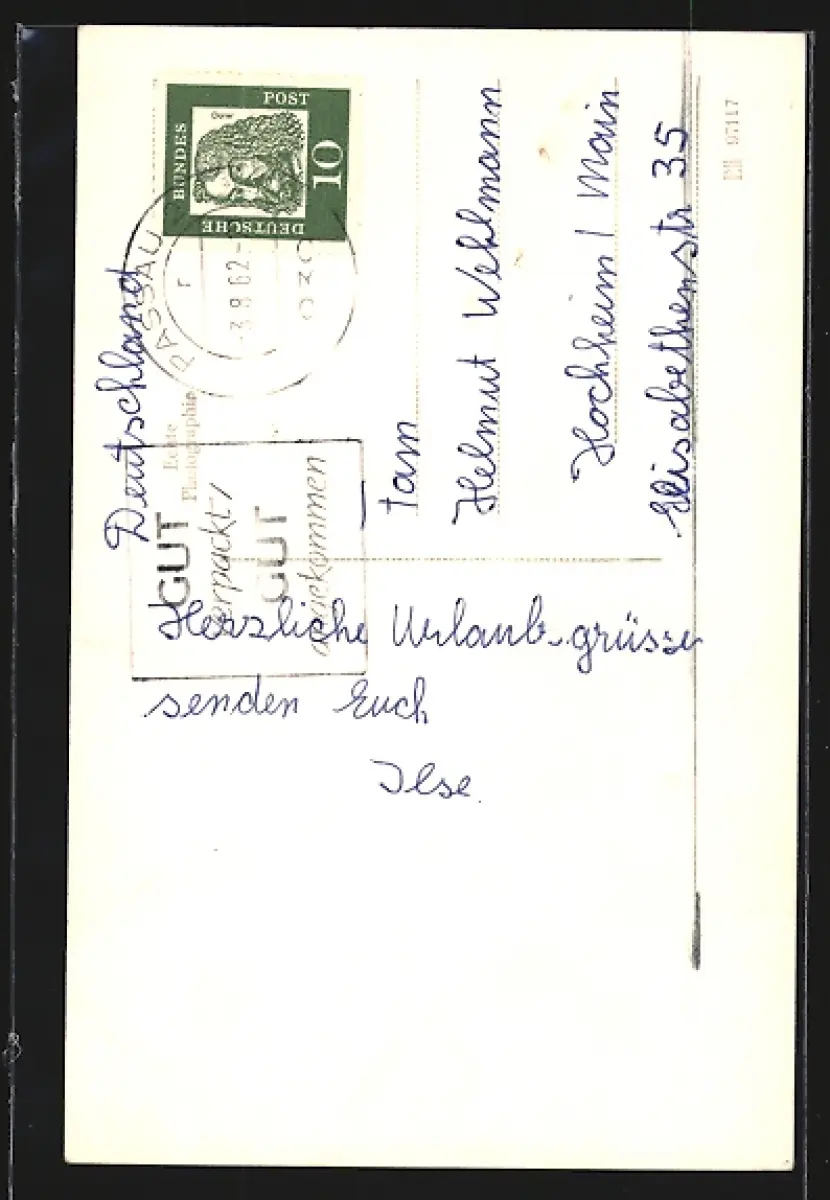 DEUTSCHE
BUNDES
POST
10
Dürer
PASSAU
-3.8.62-
r
Echte
Photographie
GUT
verpackt/
GUT
angekommen
Deutschland
Fam
Helmut Wehlmann
Hochheim / Main
Elisabethenstr 35
Herzliche Urlaubsgrüsse
senden Euch
Ilse.
97117